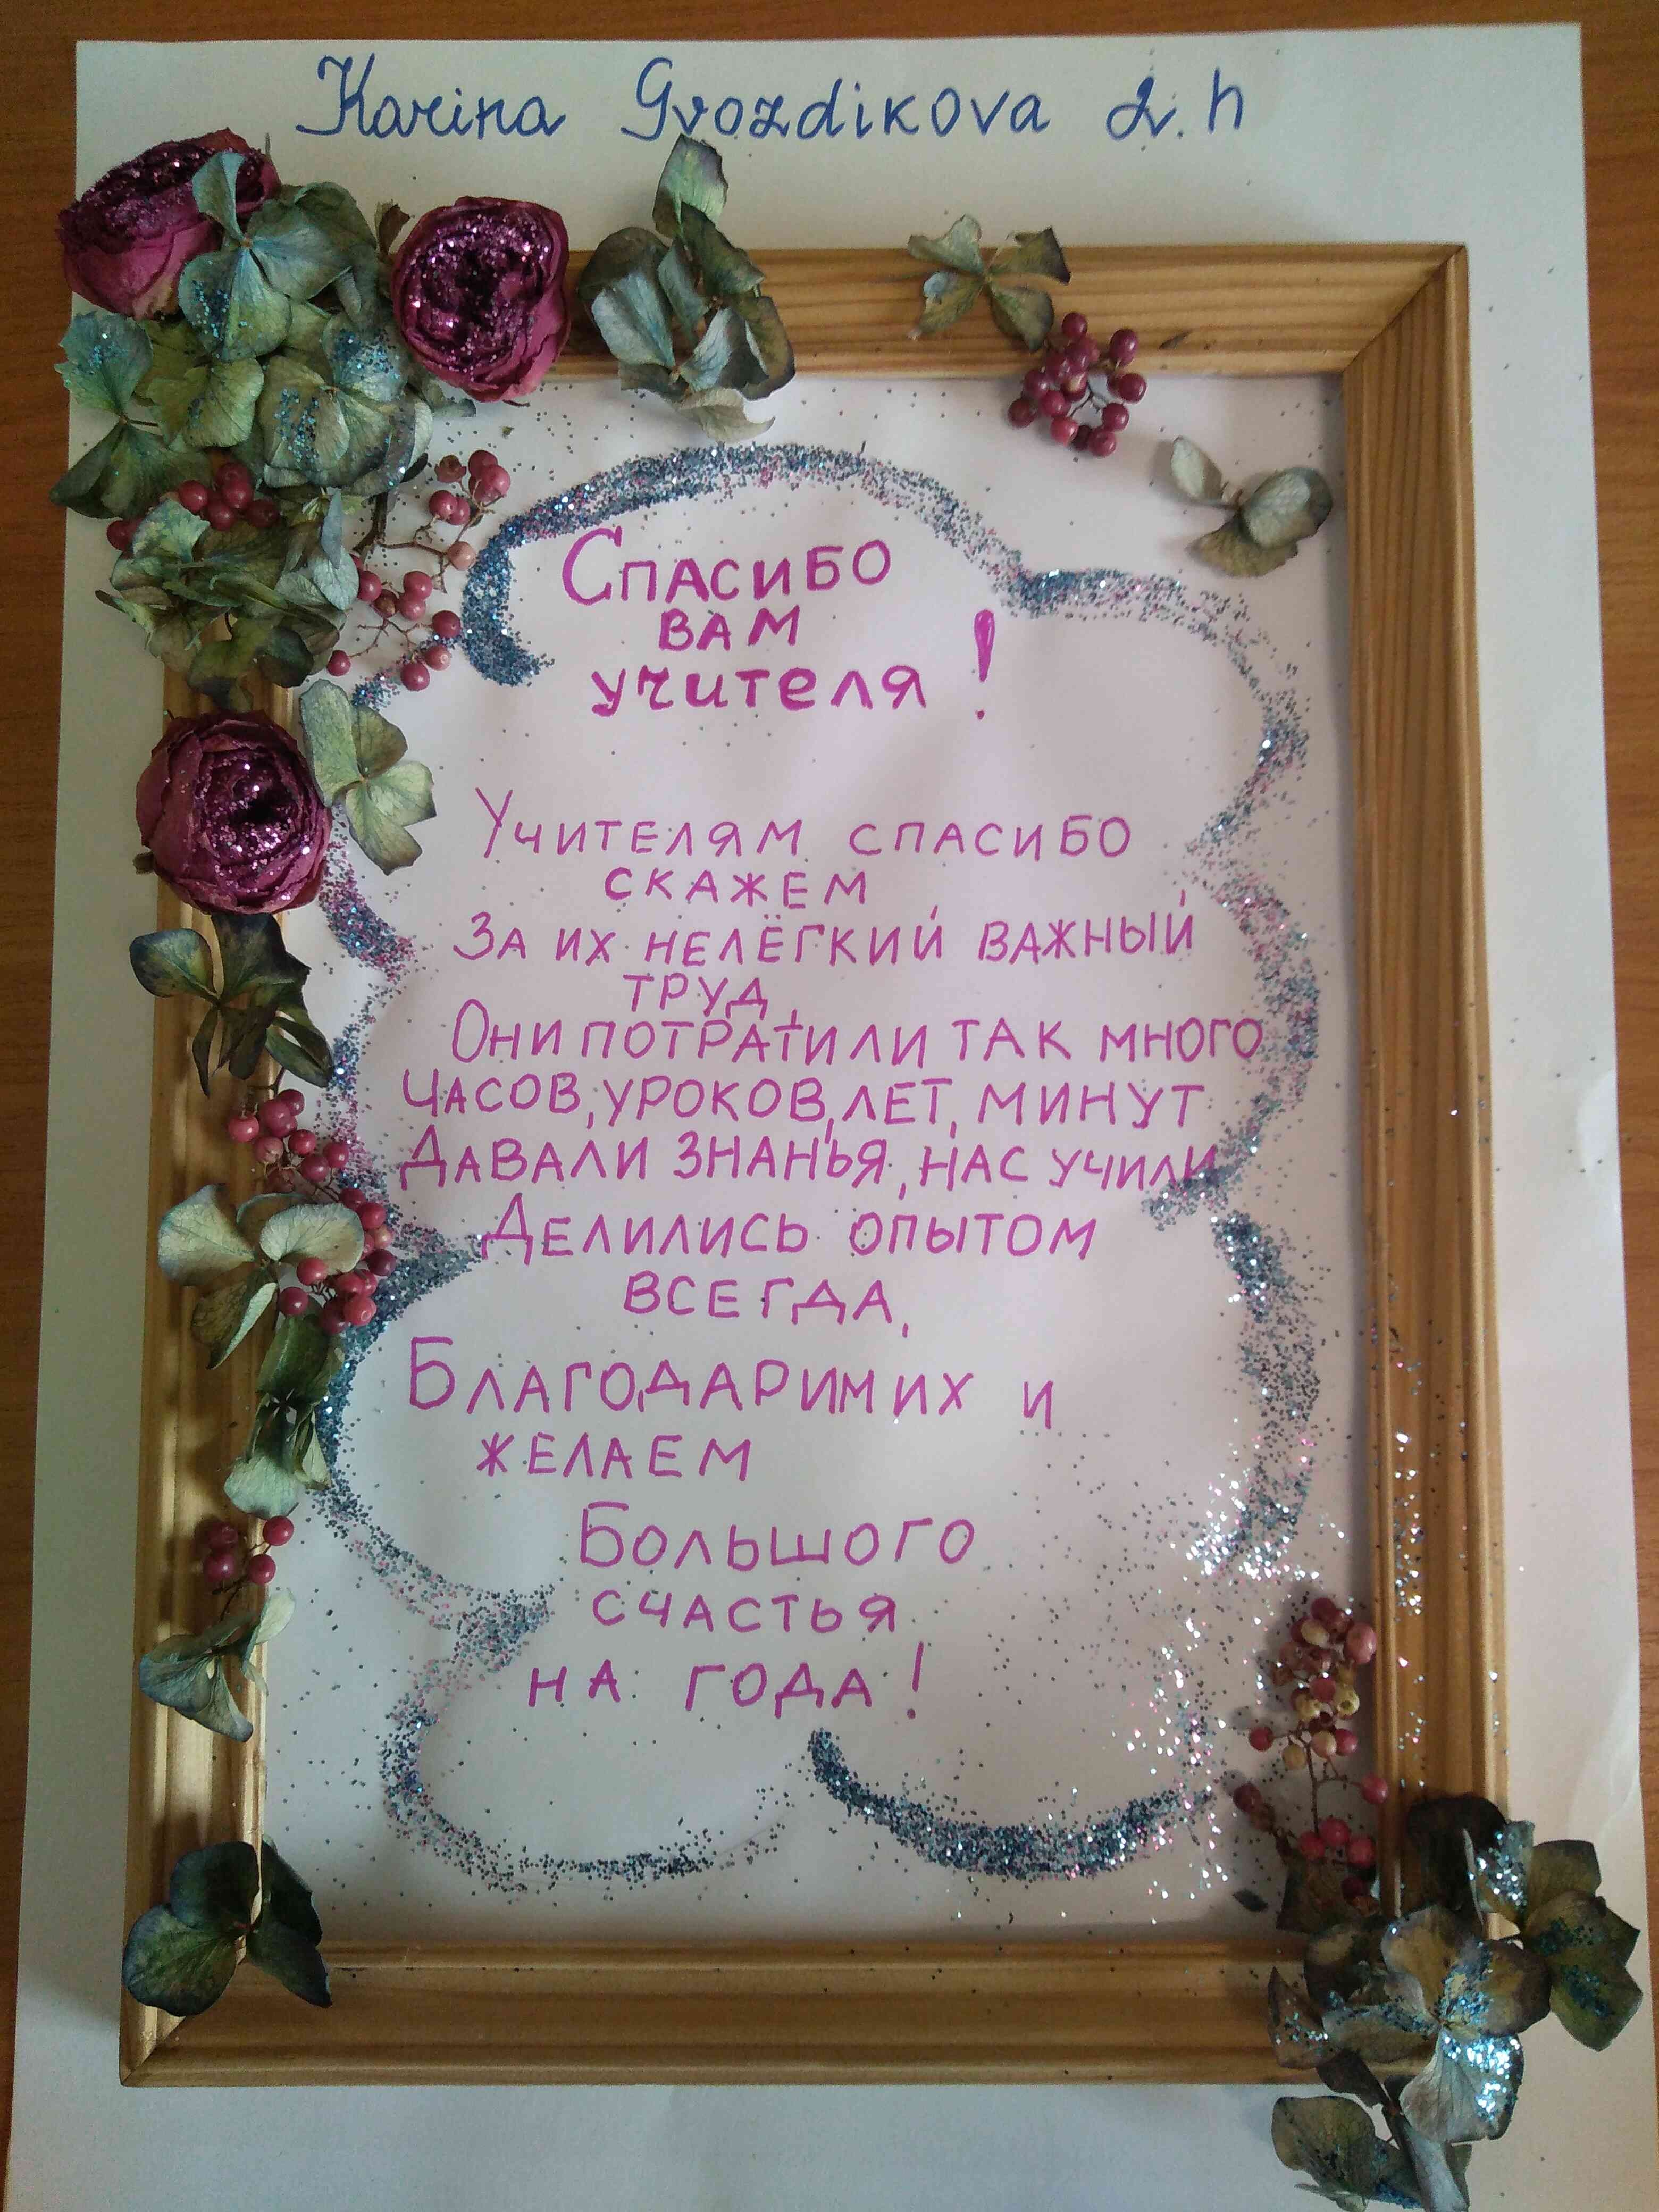 Karina Gvozdikova 2. h
Спасибо
вам
учителя!
Учителям спасибо
скажем
За их нелёгкий, важный,
труд,
Они потратили так много
Часов, уроков, лет, минут
Давали знанья, нас учили
Делились опытом
всегда,
Благодарим их и
желаем
Большого
счастья
на года!